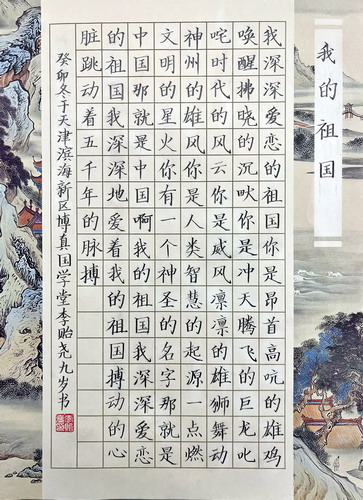 我的祖国
我深深爱恋的祖国你是昂首高吭的雄鸡
唤醒拂晓的沉吹你是冲天腾飞的巨龙叱
咤时代的风云你是威风凛凛的雄狮舞动
神州的雄风你是人类智慧的起源一点燃
文明的星火你有一个神圣的名字那就是
中国那就是中国啊我的祖国我深深爱恋
的祖国我深深地爱着我的祖国搏动的心
脏跳动着五千年的脉搏
癸卯冬于天津滨海新区博真国学堂李贻尧九岁书